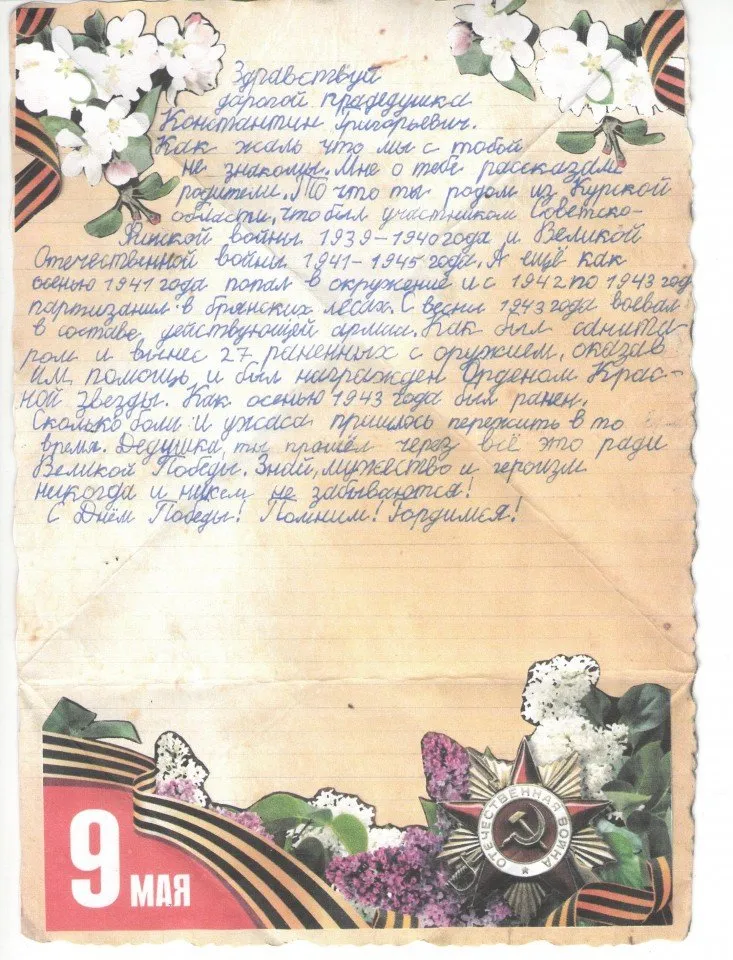 Здравствуй
дорогой прадедушка
Константин Григорьевич.
Как жаль что мы с тобой
не знакомы. Мне о тебе рассказали
родители. То что ты родом из Курской
области, что был участником Советско-
Финской войны 1939-1940 года и Великой
Отечественной войны 1941-1945 года. А ещё как
осенью 1941 года попал в окружение и с 1942 по 1943 год
партизанил в брянских лесах. С весны 1943 года воевал
в составе действующей армии. Как был санита
ром и вынес 27 раненных с оружием, оказав
им помощь и был награжден Орденом Крас-
ной звезды. Как осенью 1943 года был ранен.
Сколько боли и ужаса пришлось пережить в то
время. Дедушка, ты прошёл через всё это ради
Великой Победы. Знай, мужество и героизм
никогда и никем не забываются!
С Днём Победы! Помним! Гордимся!
ОТЕЧЕСТВЕННАЯ ВОЙНА
9 МАЯ